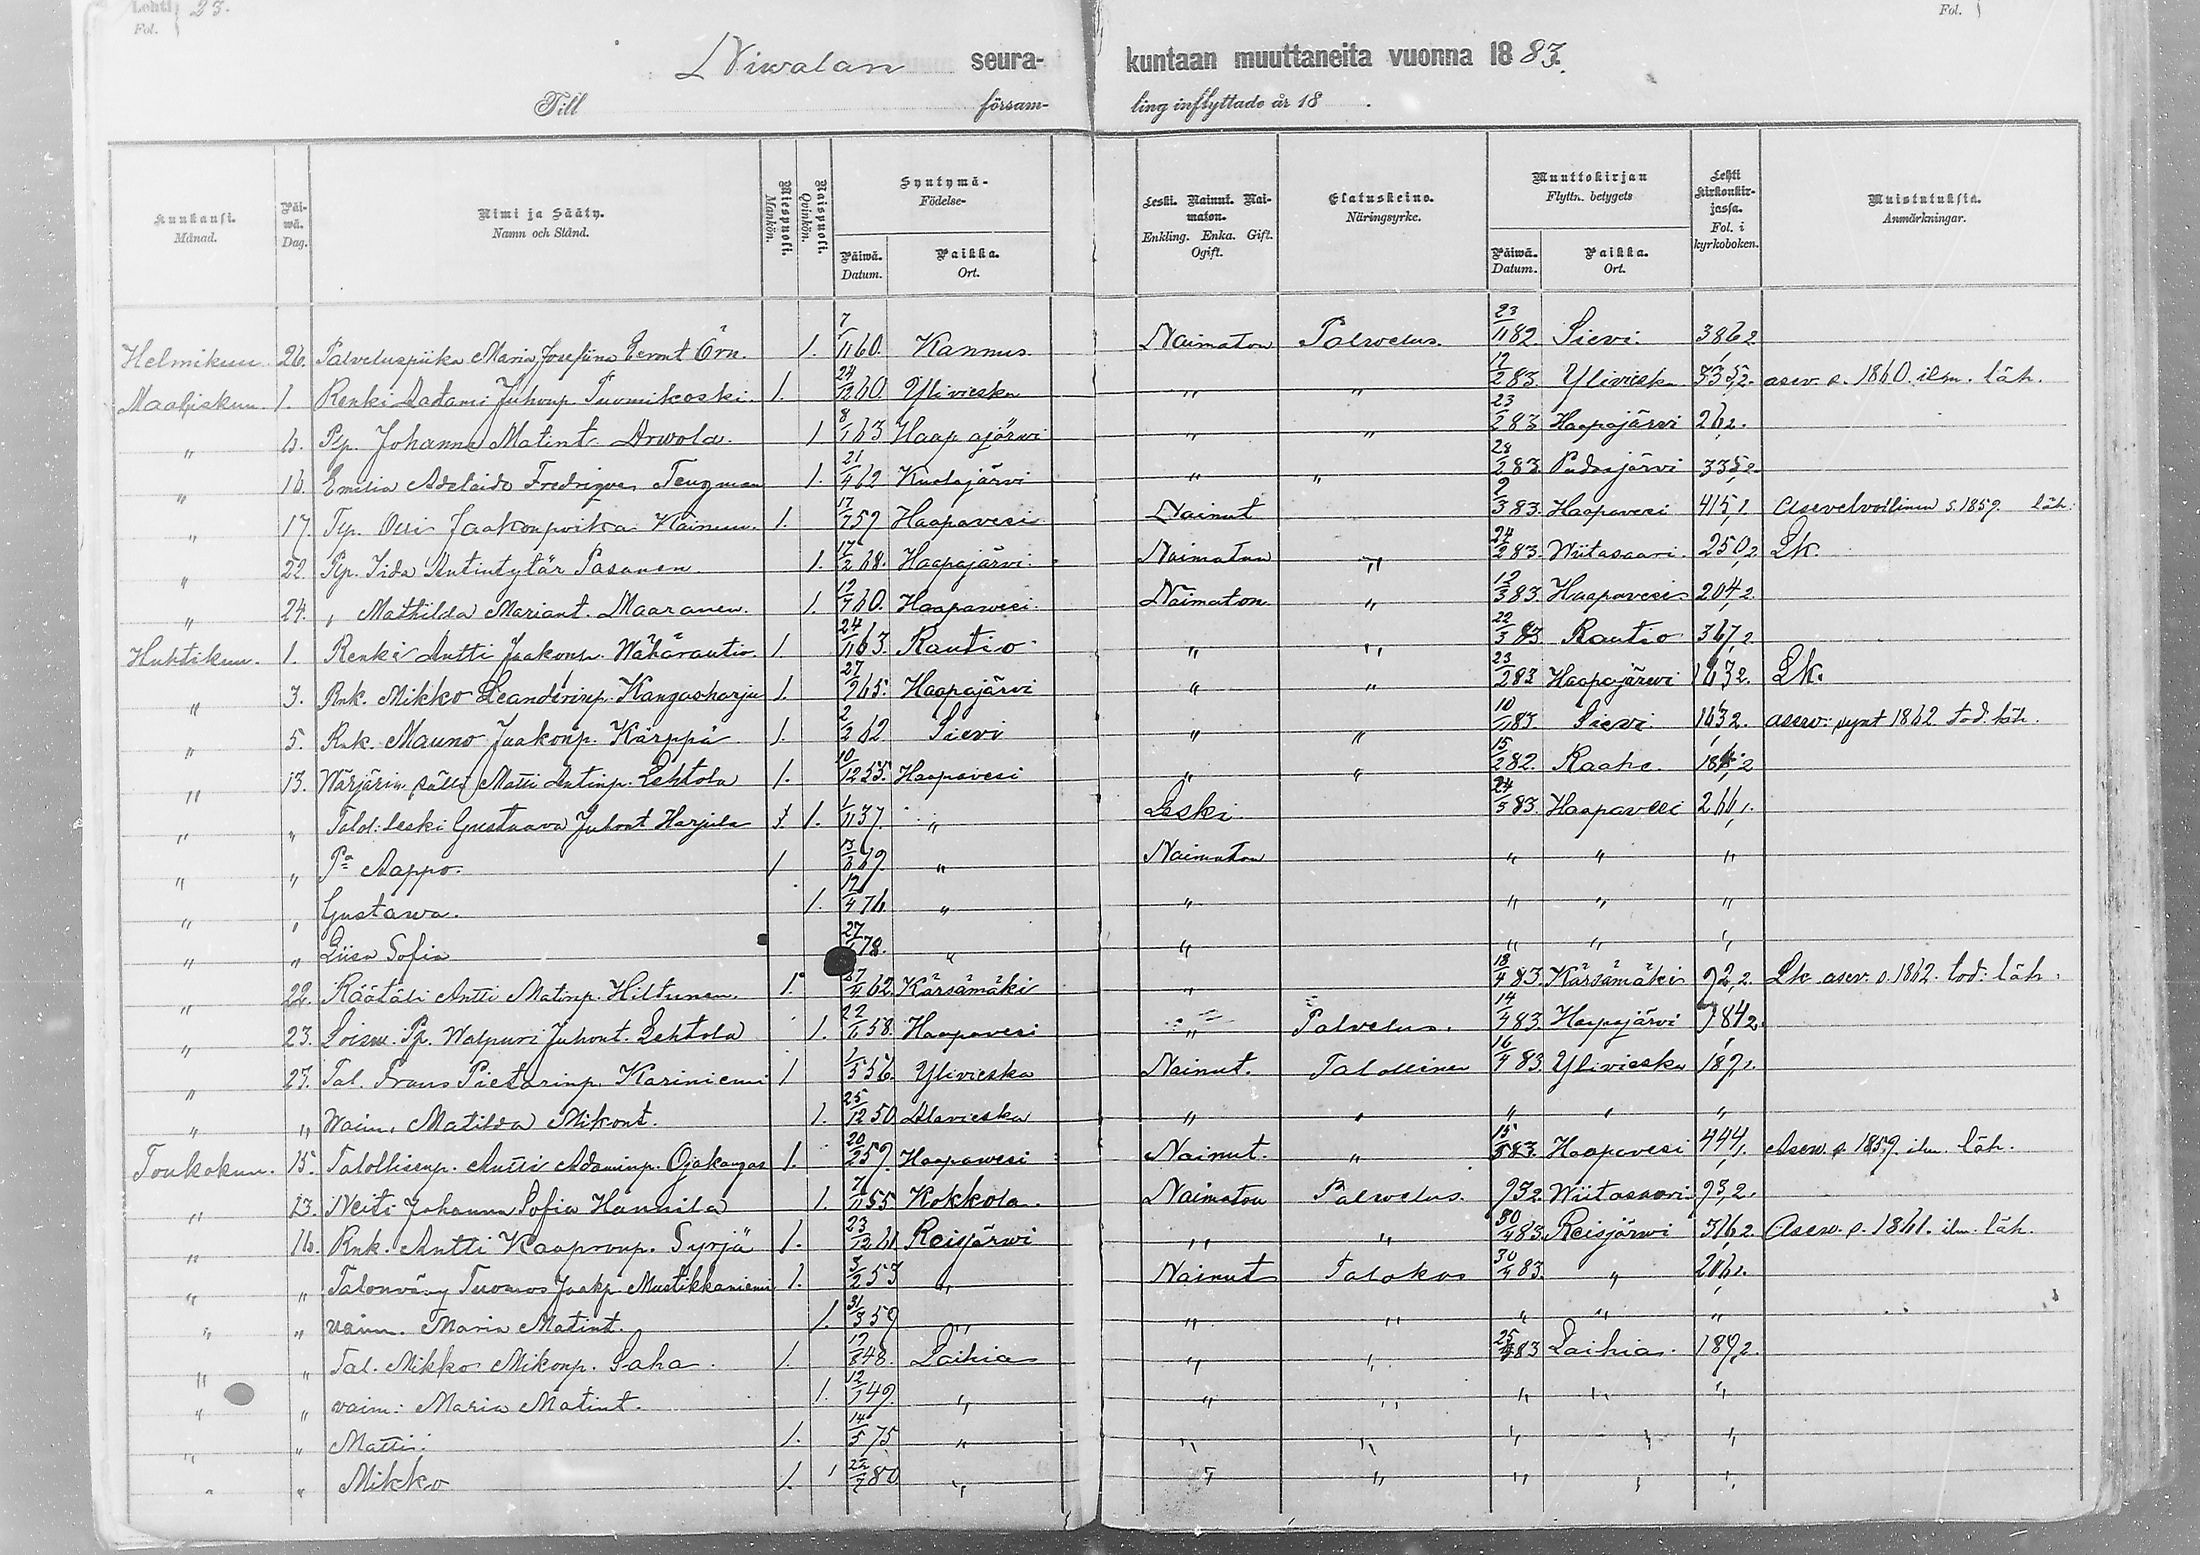 Lehti 23. Fol.
Fol.
Niwalan seura-kuntaan muuttaneita vuonna 1883.
Till försam-ling inflyttade år 18 .
Kuukausi. Månad. Päiwä. Dag. Nimi ja Sääty. Namn och Stånd. Miespuoli. Mankön. Naispuoli. Qvinkön. Syntymä- Födelse- Päiwä. Datum. Paikka. Ort. Leski. Nainut. Naimaton. Enkling. Enka. Gift. Ogift. Elatuskeino. Näringsyrke. Muuttokirjan Flyttn. betygets Päiwä. Datum. Paikka. Ort. Lehti kirkonkirjassa. Fol. i kyrkoboken. Muistutuksia. Anmärkningar.
Helmikuu 26. Palveluspiika Maria Josefiina Eeront Örn. 1. 7/11 60. Kannus. Naimaton Palwelus. 23/11 82 Sievi. 386,2
Maaliskuu. 1. Renki Aadami Juhonp. Tuomikoski. 1. 60. Ylivieska " " 12/2 83. Ylivieska 335,2. asev. s. 1860. ilm. läh.
" 6. Pp. Johanna Matint. 1 8/1 63 Haapajärwi " " 23/2 83 Haapajärvi 26,2.
" 16. Emilia Adelaide 1. 21/4 62 Kuolajärvi " " 28/2 83. Pudasjärvi 335,2
" 17. Jaakonpoika Käinen. 1. 17/7 59 Haapavesi Nainut 9/3 83. Haapavesi 415,1 Asevelvollinen s. 1859. läh.
" 22. Pp. Iida Antintytär Pasanen. 1. 17/2 68. Haapajärvi. Naimaton " 24/2 83. Wiitasaari. 250,2 Lk.
" 24. " Mathilda Mariant. Maaranen. 1. 12/7 60. Haapawesi. Naimaton " 12/3 83. Haapavesi 204,2.
Huhtikuu. 1. Renki Antti Jaakonp. Wähärautio. 1. 24/11 63. Rautio " " 22/3 83. Rautio 367,2
" 3. Rnk. Mikko Leanderinp. Kangasharju 1. 27/9 65. Haapajärvi " " 23/2 83 Haapajärwi 163,2. Lk.
" 5. Rnk. Mauno Jaakonp. Kärppä 1. 2/3 62 Sievi " " 10/1 83. Sievi. 163,2. asev: synt 1862 tod. läh.
" 13. Wärjärin sälli Matti Antinp. Lehtola 1. 10/12 55. Haapavesi " " 15/2 82. Raahe.
" " Talol: leski Gustaava Juhont Harjula 1. 1/11 37. " Leski 24/3 83. Haapavesi 266,1.
" " Pa Aappo. 1 69 " Naimaton " " "
" " Gustawa. 1. 17/4 76 " " " " "
" " Liisa Sofia 27/ 78. " " " " "
" 22. Räätäli Antti Matinp. Hiltunen. 1. 27/4 62. Kärsämäki " 18/4 83. Kärsämäki 92,2. Lk asev. s. 1862. tod: läh.
" 23. Loisen. Pp. Walpuri Juhont. Lehtola 1. 22/ 58. Haapavesi " Palvelus. 14/4 83. Haapajärvi
" 27. Tal. Frans Pietarinp. Kariniemi 1 1/5 56. Ylivieska Nainut. Talollinen 16/4 83. Ylivieska
" " Waim. Matilda Mikont. 1. 25/12 50 Alavieska " " " " "
Toukokuu. 15. Talollisenp. Antti Adaminp. Ojakangas 1. 20/2 59. Haapawesi Nainut. " 15/ 83. Haapavesi 444,1. Asev. s. 1859. ilm. läh.
" 23. Neiti Johanna Sofia Hannila 1. 55 Kokkola. Naimaton Palwelus. Wiitasaari. 93,2.
" 16. Rnk. Antti Kaapronp. Syrjä 1. 23/12 61 Reisjärwi " " 30/4 83. Reisjärwi 316,2 Asev. s. 1861. ilm. läh.
" " Talonväv Tuomas Jaakp. Mustikkaniemi 1. 3/2 53 " Nainut 30/4 83. "
" " vaim. Maria Matint. 1. 31/3 59 " " " " " "
" " Tal. Mikko Mikonp. Saha 1. 48. Laihia " " 83 Laihia. 189,2.
" " vaim: Maria Matint. 1. 12/1 49. " " " " " "
" " Matti. 1. 14/5 75 " " " " " "
" " Mikko 1. 1 80 " " " " " "